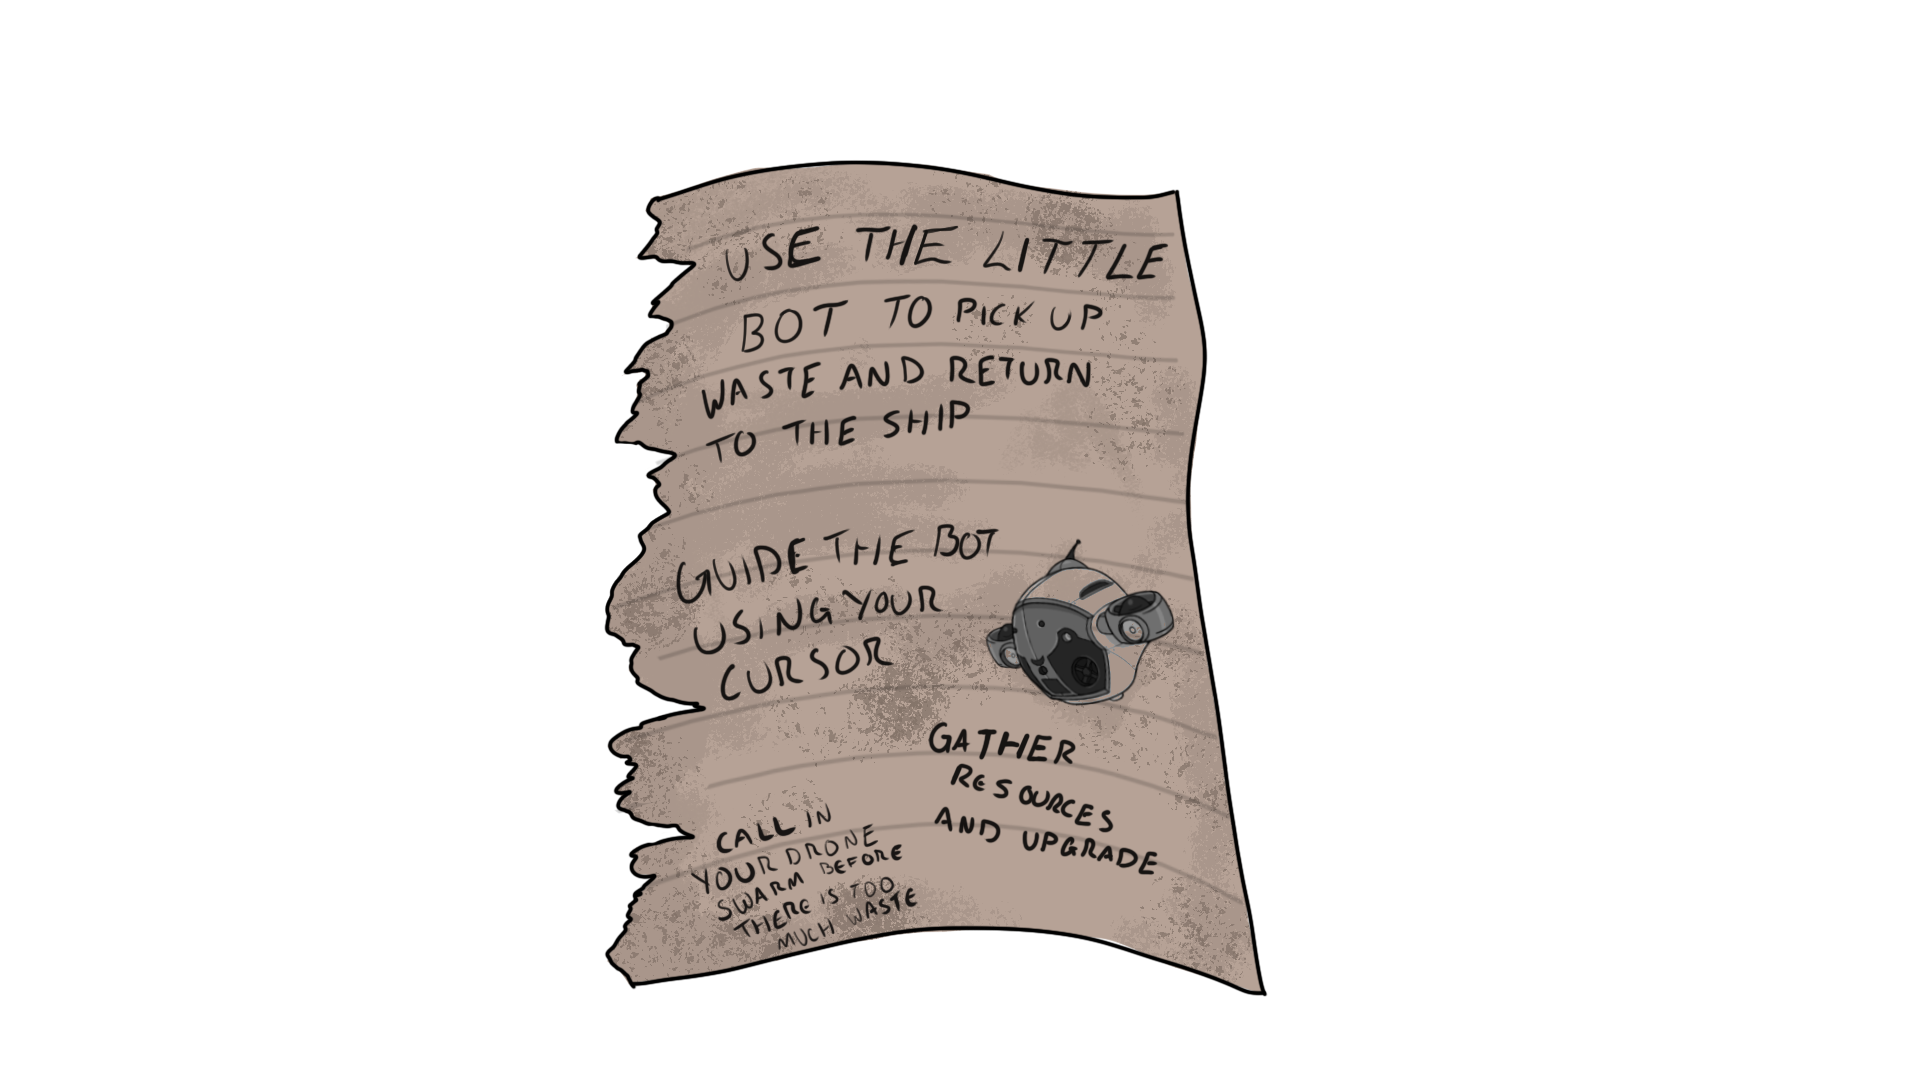 USE THE LITTLE
BOT TO PICK UP
WASTE AND RETURN
TO THE SHIP
GUIDE THE BOT
USING YOUR
CURSOR
GATHER
RESOURCES
AND UPGRADE
CALL IN
YOUR DRONE
SWARM BEFORE
THERE IS TOO
MUCH WASTE